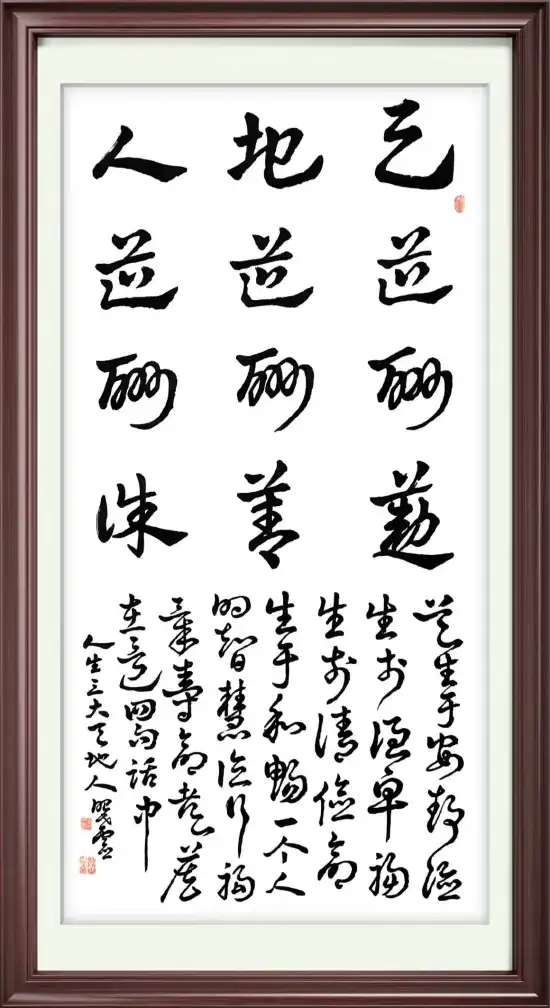 天道酬勤
地道酬善
人道酬诚
道生于安静德
生于谦卑福
生于清俭命
生于和畅一个人
的智慧德行福
气寿命
在这四句话中
人生三大天地人